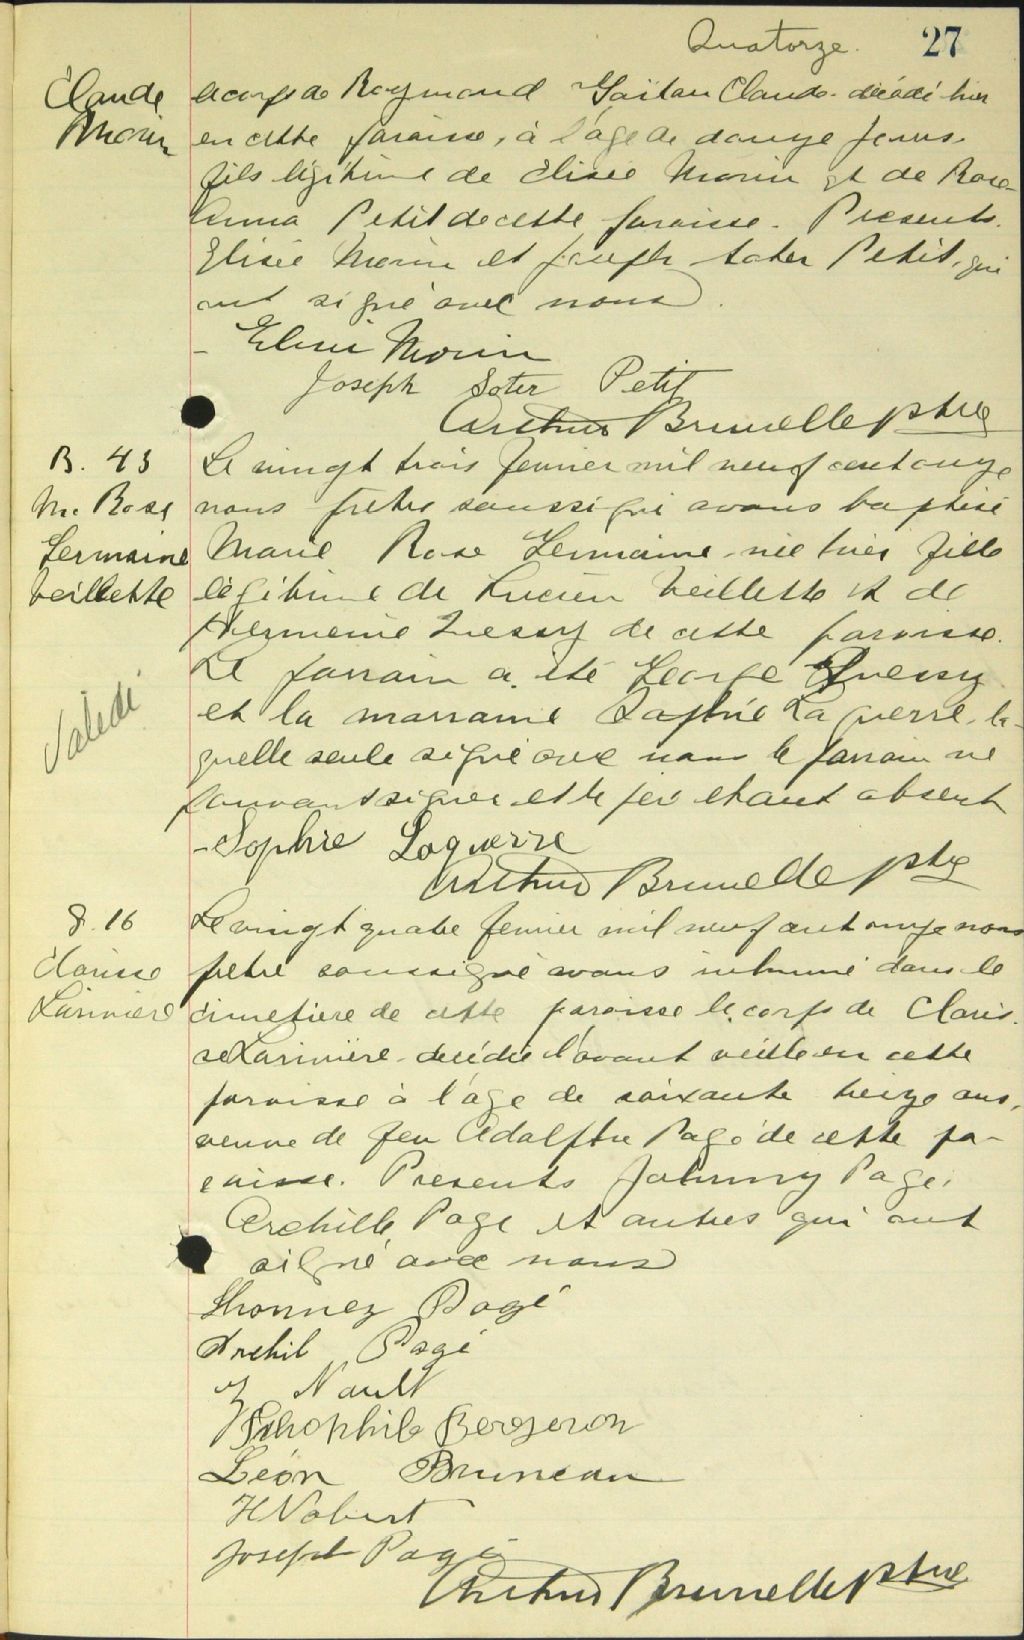 Quatorze. 27
Claude Morin
le corps de Raymond Gaëtan Claude décédé hier
en cette paroisse, à l'âge de douze jours.
fils légitime de Elisée Morin et de Rose-
Anna Petit de cette paroisse. Presents.
Elisée Morin et Joseph Soter Petit, qui
ont signé avec nous.
Elisée Morin
Joseph Soter Petit
Arthur Brunelle ptre
B. 43
M. Rose
Germaine
Veillette
Le vingt trois fevrier mil neuf cent onze
nous prêtre soussigné avons baptisé
Marie Rose Germaine née hier fille
légitime de Lucien Veillette et de
Hermeine Quessy de cette paroisse.
Le parrain a été George Quessy
et la marraine Sophie Laguerre, la-
quelle seule signé avec nous le parrain ne
pouvant signer et le père etant absent
Sophie Laguerre
Arthur Brunelle ptre
Validé
S. 16
Clarisse
Larivière
Le vingt quatre fevrier mil neuf cent onze nous
prêtre soussigné avons inhumé dans le
cimetière de cette paroisse le corps de Claris-
se Larivière décédée l'avant veille en cette
paroisse à l'âge de soixante treize ans,
veuve de feu Adolphe Pagé de cette pa-
roisse. Presents Johnny Pagé,
Archille Page et autres qui ont
signé avec nous
Shonney Pagé
Archil Pagé
Nault
Théophile Bergeron
Léon Bruneau
H Nobert
Joseph Pagé
Arthur Brunelle ptre